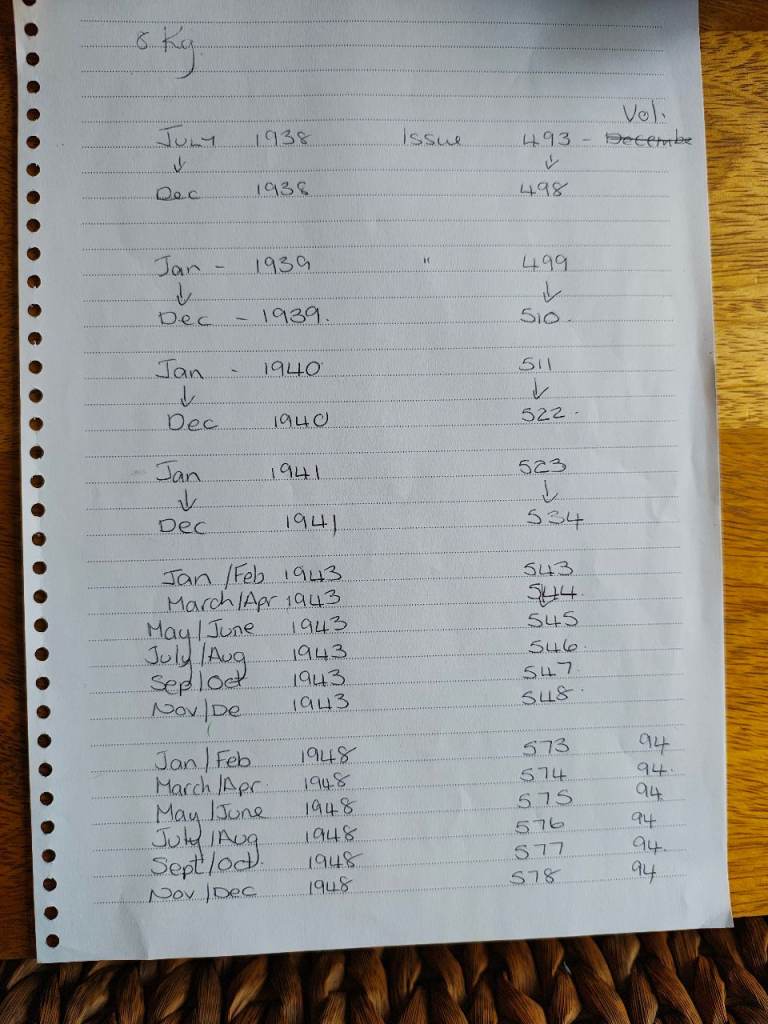 8 Kg.
Vol.
July 1938 Issue 493 - Decembe
↓ ↓
Dec 1938 498
Jan - 1939 " 499
↓ ↓
Dec - 1939. 510.
Jan - 1940 511
↓ ↓
Dec 1940 522.
Jan 1941 523
↓ ↓
Dec 1941 534
Jan/Feb 1943 543
March/Apr 1943 544
May/June 1943 545
July/Aug 1943 546.
Sep/Oct 1943 547.
Nov/De 1943 548.
Jan/Feb 1948 573 94
March/Apr. 1948 574 94.
May/June 1948 575 94
July/Aug 1948 576 94
Sept/Oct. 1948 577 94.
Nov/Dec 1948 578 94